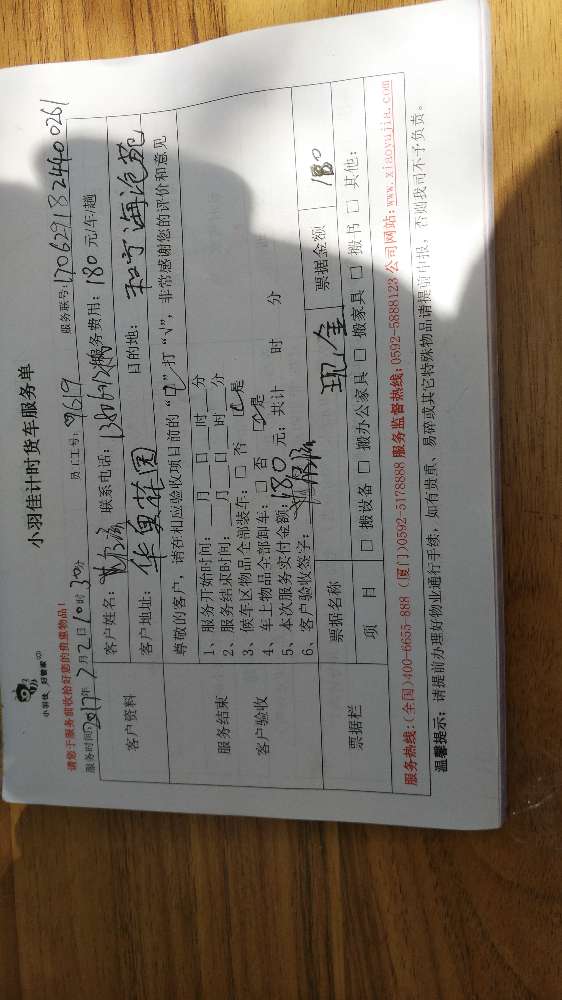 小羽佳计时货车服务单
小羽佳 好管家
请您于服务前收拾好您的贵重物品！
服务时间：2017年7月2日10时30分 员工工号：9619 服务联号：1706291824400261
客户资料
客户姓名： 联系电话： 服务费用：180元/车/趟
客户地址：华奥花园 目的地：和宁海沧苑
服务结束
客户验收
尊敬的客户，请在相应验收项目前的“□”打“√”，非常感谢您的评价和意见
1、服务开始时间：___月___日___时___分
2、服务结束时间：___月___日___时___分
3、候车区物品全部装车：□ 否 □是
4、车上物品全部卸车：□ 否 □是
5、本次服务实付金额：180元；共计 时 分
6、客户验收签字：
票据栏
票据名称 现金 票据金额 180
项 目 □ 搬设备 □ 搬办公家具 □ 搬家具 □ 搬书 □ 其他：
服务热线：(全国)400-6655-888 (厦门)0592-5178888 服务监督热线：0592-5888123 公司网站：www.xiaoyujia.com
温馨提示：请提前办理好物业通行手续，如有贵重、易碎或其它特殊物品请提前申报，否则我司不予负责。